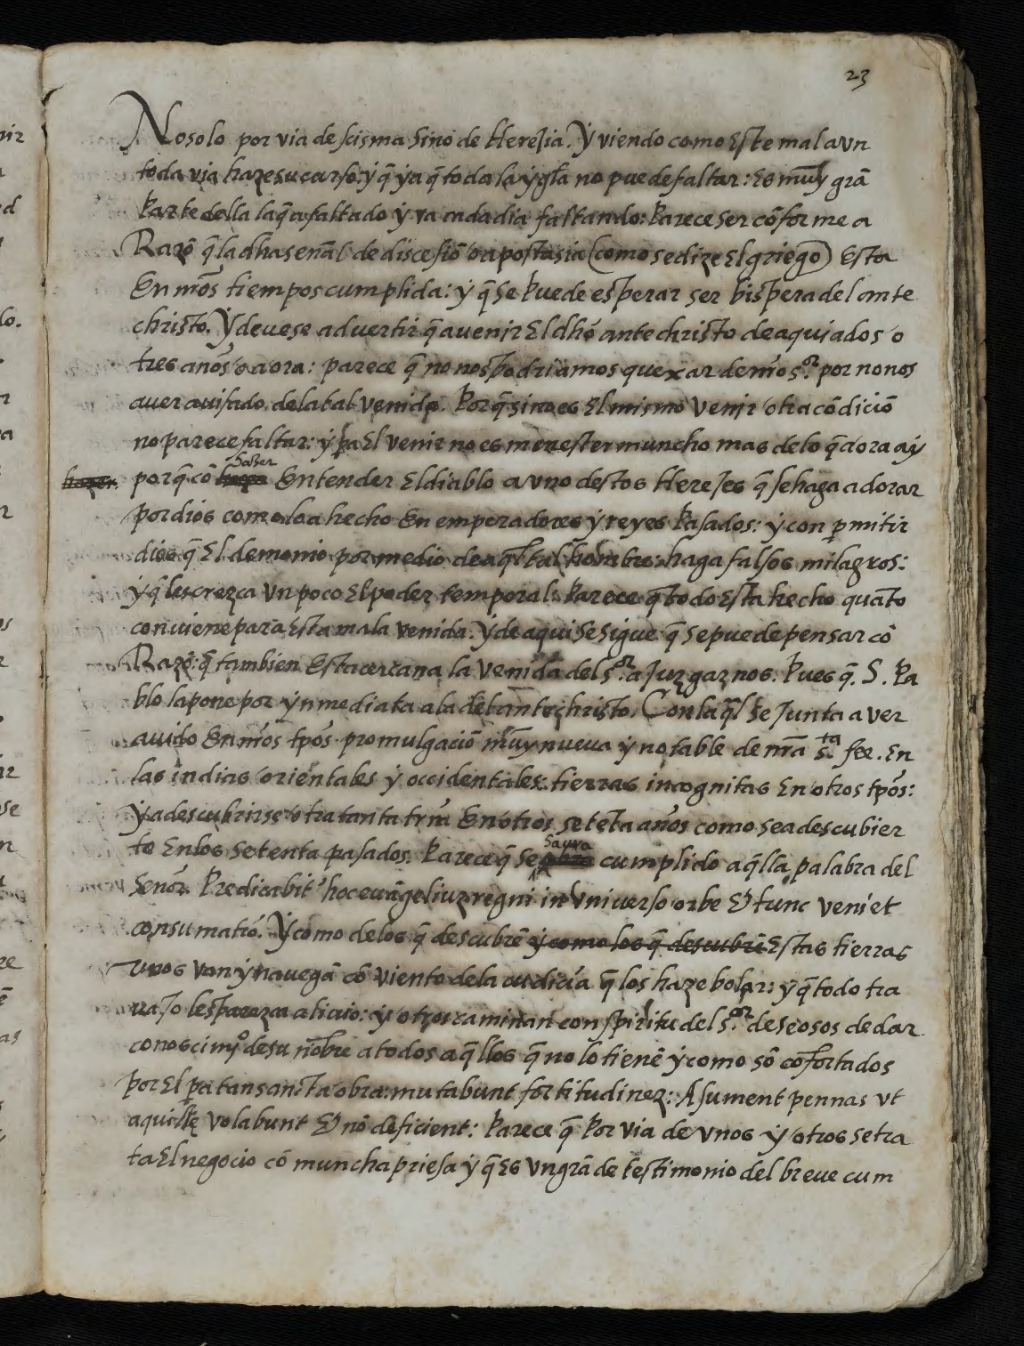 23
No solo por via de scisma sino de Heregia. Y viendo como este mal aun
toda via haze su curso: y q̃ ya q̃ toda la ygl̃a no puede faltar: es muy grã
parte della la q̃ a faltado y va cada dia faltando: parece ser cõforme a
Razõ q̃ la dha señal de discesiõ o apostasia (como se dize el griego) esta
En nr̃os tiempos cumplida: y q̃ se puede esperar ser bispera del ante
christo. Y devese advertir q̃ a venir el dhõ antechristo de aqui a dos o
tres años o aora: parece q̃ no nos podriamos quexar de nr̃o s.or por no nos
aver avisado de la tal venida. Porq̃ sino es el mismo venir otra cõdiciõ
no parece faltar: y pa El venir no es menester muncho mas de lo q̃ aora ay
hazer. porq̃ cõ haga saber Entender El diablo a uno destos Hereges q̃ se haga adorar
por dios como lo a hecho en emperadores y reyes pasados: y con p̱mitir
dios q̃ El demonio por medio de aq̃l tal hombre: haga falsos milagros:
y q̃ les crezca un poco El poder temporal. Parece q̃ todo esta hecho quãto
conviene para esta mala venida. Y de aqui se sigue q̃ se puede pensar cõ
Razõ: q̃ tambien esta cercana la venida del s.or a Juzgarnos. Pues q̃. S. Pa
blo la pone por ynmediata a la del antechristo. Con la q̃l se Junta aver
avido en nr̃os tp̃os promulgaciõ muy nueva y notable de nr̃a s.ta fee. En
las indias orientales y occidentales: tierras incognitas En otros tp̃os:
Y a descubrirse otra tanta trr̃a En otros seteta años como se a descubier
to En los setenta pasados. Parece q̃ se abra savra cumplido aq̃lla palabra del
Señor. Predicabit hoc evãgeliuz regni in universo orbe & tunc veniet
consumatio. Y como de los q̃ descubrẽ y como los q̃ descubrẽ Estas tierras
unos van y navegã cõ viento de la cudicia q̃ los haze bolar: y q̃ todo tra
vajo les parezca alivio: y otros caminan con spiritu del s.or deseosos de dar
conoscimyo de su nõbre a todos aq̃llos q̃ no lo tienẽ y como sõ cõfortados
por El pa tan santa obra: mutabunt fortitudinez: Asument pennas ut
aquille volabunt & nõ deficient: Parece q̃ por via de unos y otros se tra
ta El negocio cõ muncha priesa y q̃ Es un grãde testimonio del breve cum